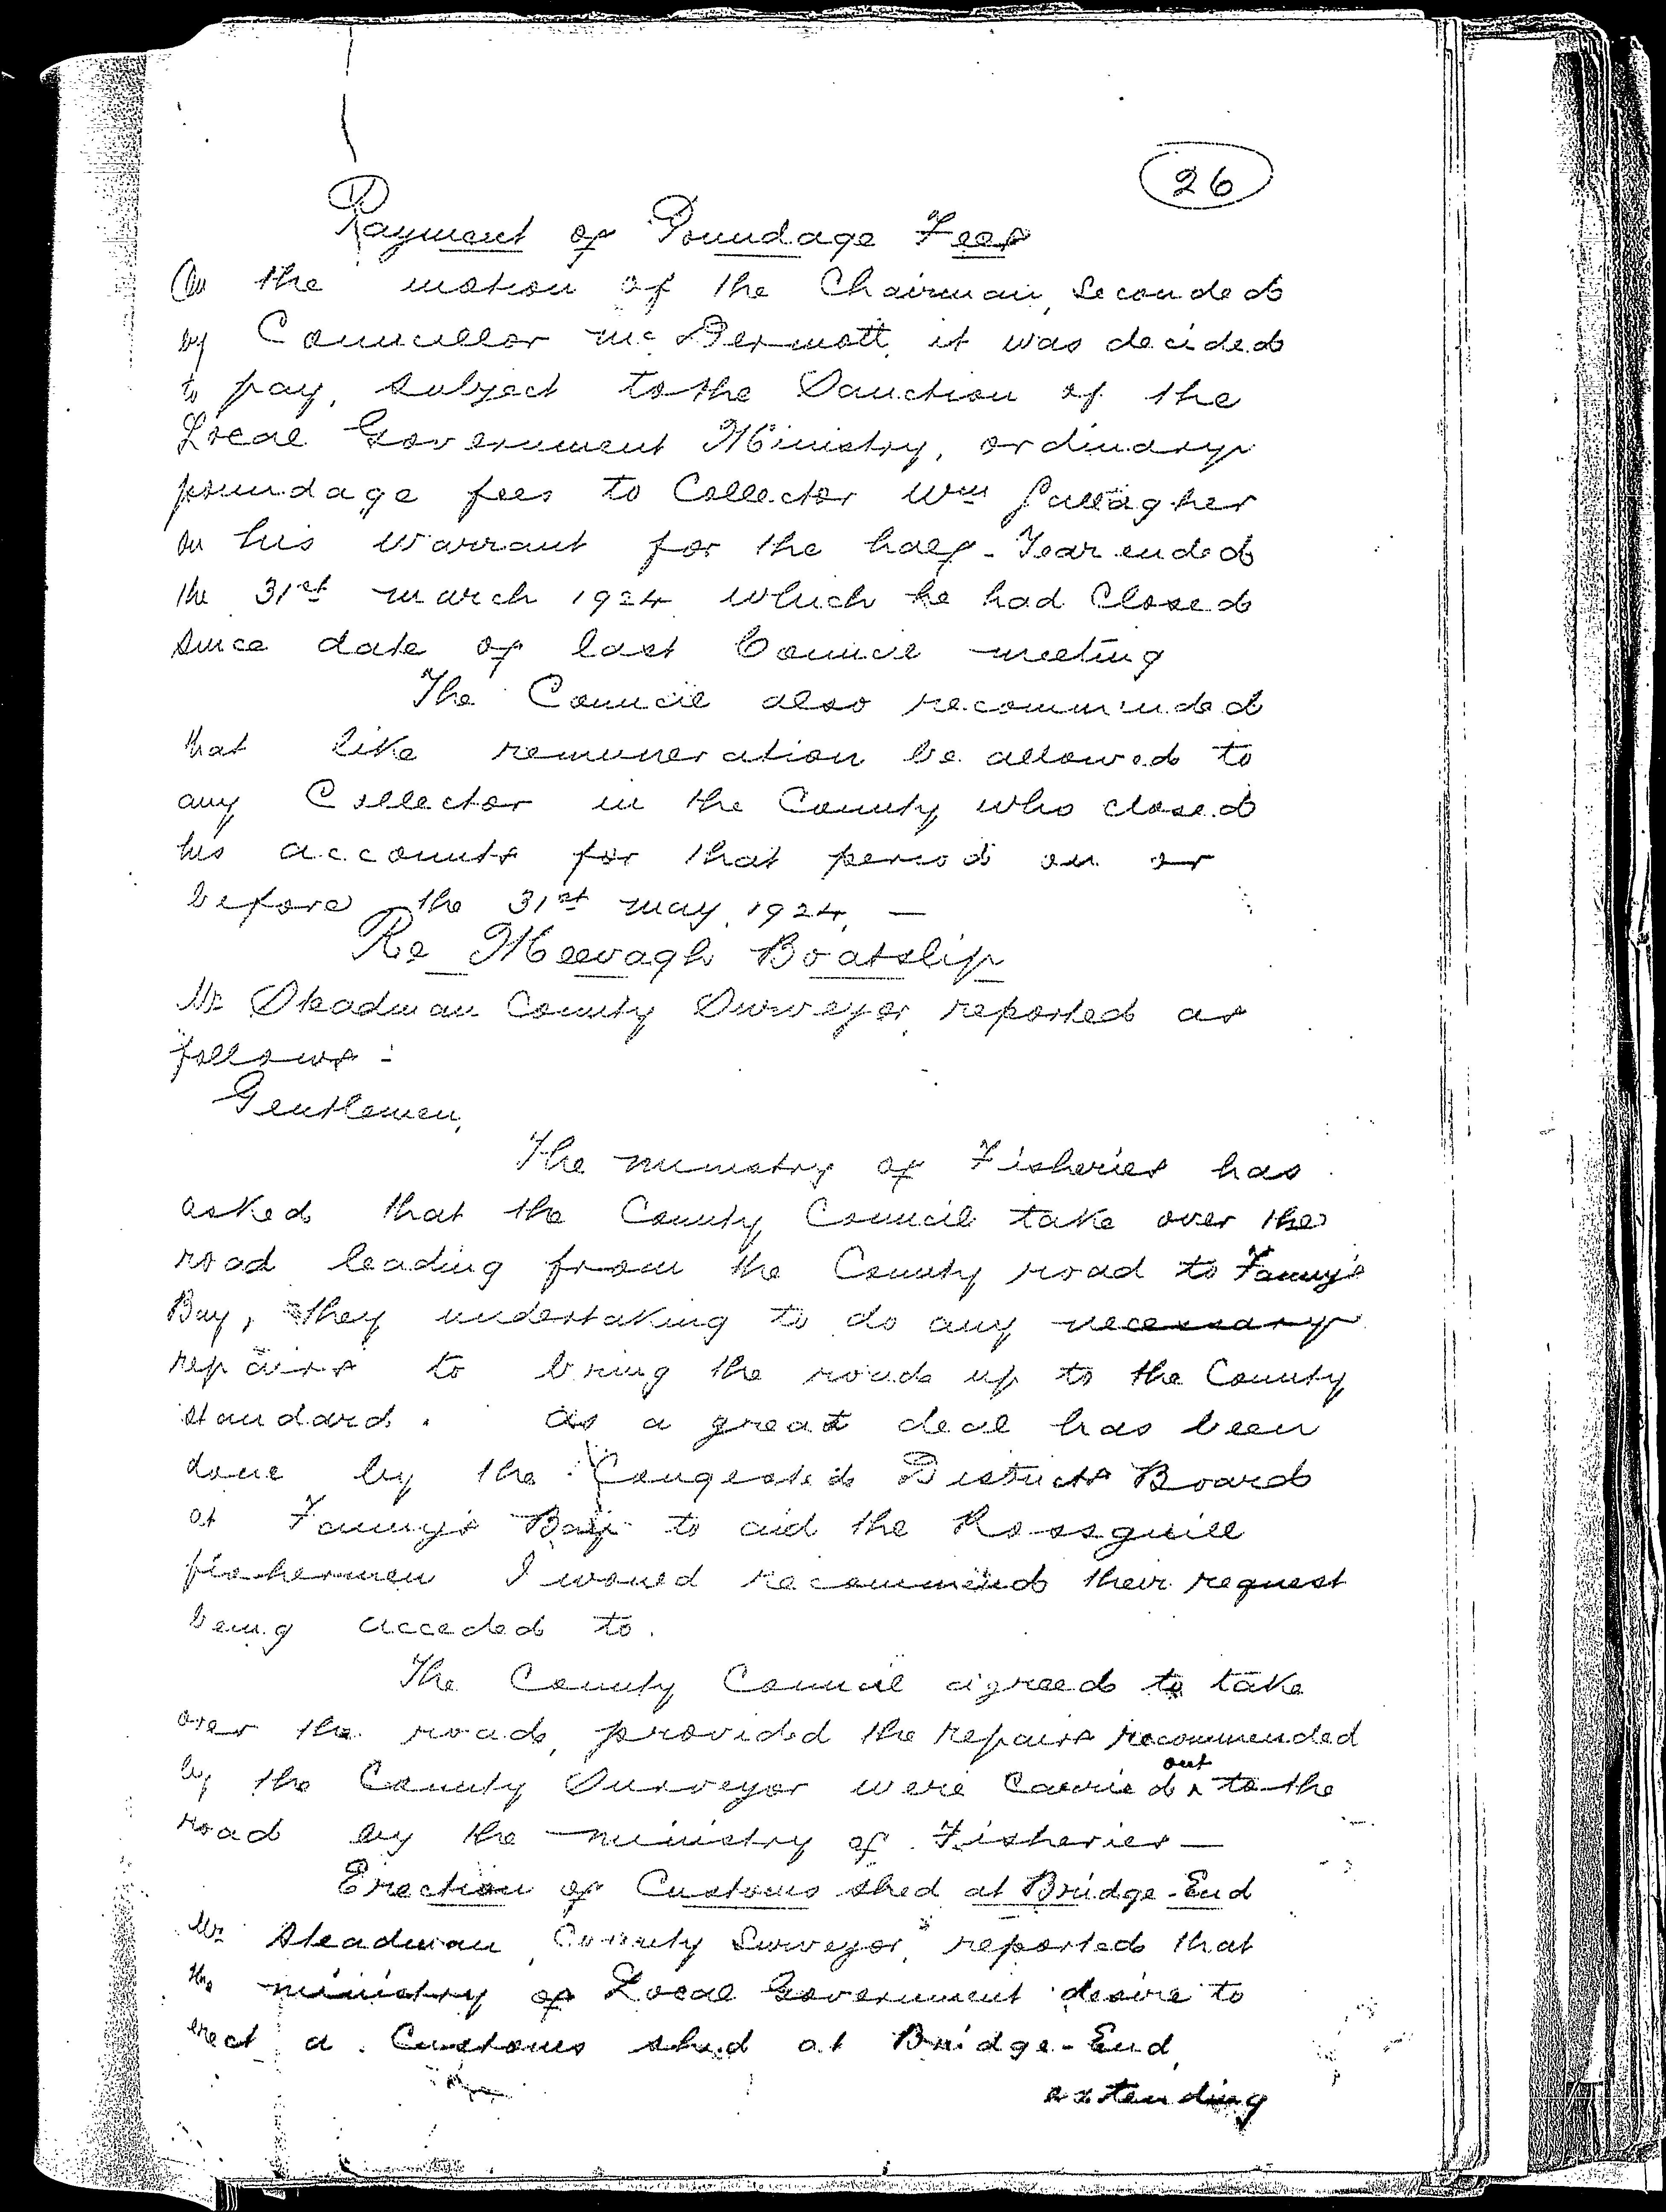 26
Payment of Poundage Fees
On the motion of the Chairman, seconded
by Councillor McDermott, it was decided
to pay, subject to the Sanction of the
Local Government Ministry, ordinary
poundage fees to Collector Wm Gallagher
on his warrant for the half-Year ended
the 31st March 1924 which he had Closed
since date of last Council meeting
The Council also recommended
that like remuneration be allowed to
any Collector in the County who closed
his accounts for that period on or
before the 31st May, 1924. —
Re Meevagh Boatslip
Mr Steadman County Surveyor, reported as
follows :-
Gentlemen,
The ministry of Fisheries has
asked that the County Council take over the
road leading from the County road to Fanny's
Bay, they undertaking to do any necessary
repairs to bring the road up to the County
standard. As a great deal has been
done by the Congested Districts Board
at Fanny's Bay to aid the Rossguill
fishermen I would recommend their request
being acceded to.
The County Council agreed to take
over the road, provided the repairs recommended
by the County Surveyor were carried out to the
road by the ministry of Fisheries —
Erection of Customs shed at Bridge-End
Mr Steadman, County Surveyor, reported that
the ministry of Local Government desire to
erect a Customs shed at Bridge-End,
extending